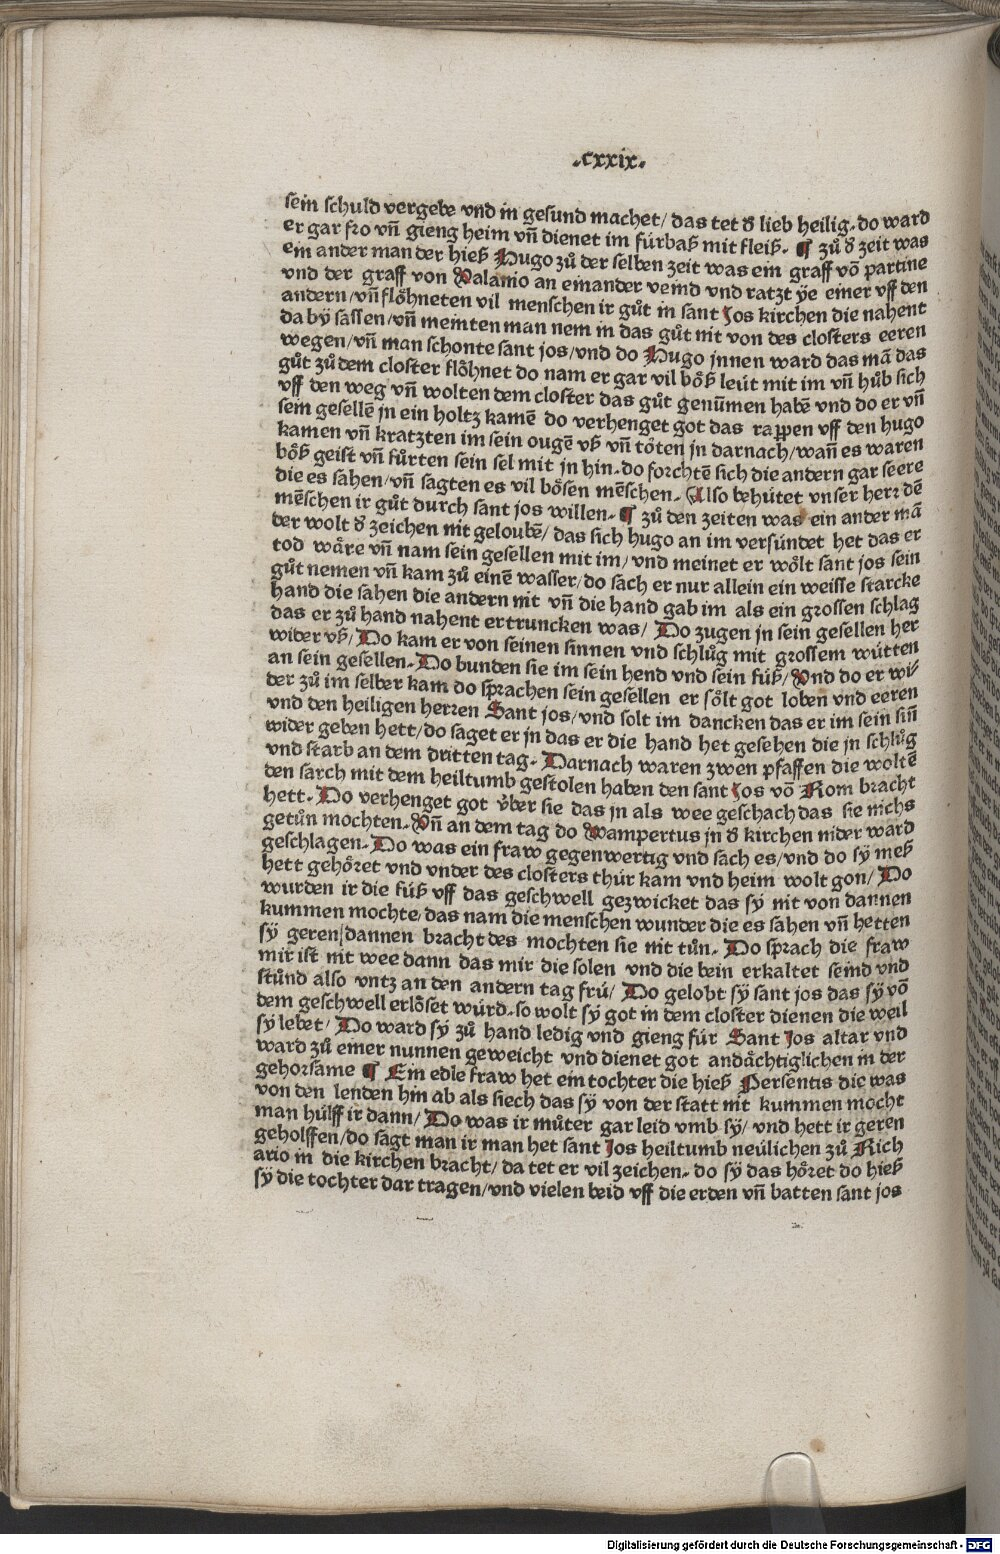 .cxxix.
sein schuld vergebe vnd in gesund machet/ das tet d̕ lieb heilig. do ward
er gar fro vn̄ gieng heim vn̄ dienet im fürbaß mit fleiß. ¶ zů d̕ zeit was
ein ander man der hieß Hugo zů der selben zeit was ein graff vō partine
vnd der graff von Valanio an einander veind vnd ratzt ÿe einer vff den
andern/vn̄ flőhneten vil menschen ir gůt in sant Jos kirchen die nahent
da bÿ sassen/vn̄ meinten man nem in das gůt nit von des closters eeren
wegen/vn̄ man schonte sant jos/vnd do Hugo jnnen ward das mā das
gůt zů dem closter flőhnet do nam er gar vil bőß leüt mit im vn̄ hůb sich
vff den weg vn̄ wolten dem closter das gůt genūmen habē vnd do er vn̄
sein gesellē in ein holtz kamē do verhenget got das rappen vff den hugo
kamen vn̄ kratzten im sein ougē vß vn̄ tőten jn darnach/wan̄ es waren
bőß geist vn̄ fůrten sein sel mit jn hin. do forchtē sich die andern gar seere
die es sahen/vn̄ sagten es vil bősen mēschen. Also behütet vnser herr dē
mēschen ir gůt durch sant jos willen. ¶ zů den zeiten was ein ander mā
der wolt d̕ zeichen nit geloubē/ das sich hugo an im versündet het das er
tod wäre vn̄ nam sein gesellen mit im/ vnd meinet er wőlt sant jos sein
gůt nemen vn̄ kam zů einē wasser/do sach er nur allein ein weisse starcke
hand die sahen die andern nit vn̄ die hand gab im als ein grossen schlag
das er zů hand nahent ertruncken was/ Do zugen jn sein gesellen her
wider vß/ Do kam er von seinen sinnen vnd schlůg mit grossem wütten
an sein gesellen. Do bunden sie im sein hend vnd sein füß/ Vnd do er wi/
der zů im selber kam do sprachen sein gesellen er sőlt got loben vnd eeren
vnd den heiligen herren Sant jos/vnd solt im dancken das er im sein sin̄
wider geben hett/do saget er jn das er die hand het gesehen die jn schlůg
vnd starb an dem dritten tag. Darnach waren zwen pfaffen die woltē
den sarch mit dem heiltumb gestolen haben den sant Jos vō Rom bracht
hett. Do verhenget got v̈ber sie das jn als wee geschach das sie nichs
getůn mochten. Vn̄ an dem tag do Wampertus jn d̕ kirchen nider ward
geschlagen. Do was ein fraw gegenwertig vnd sach es/vnd do sÿ meß
hett gehőret vnd vnder des closters thür kam vnd heim wolt gon/ Do
wurden ir die füß vff das geschwell gezwicket das sÿ nit von dannen
kummen mochte/das nam die menschen wunder die es sahen vn̄ hetten
sÿ geren dannen bracht des mochten sie nit tůn. Do sprach die fraw
mir ist nit wee dann das mir die solen vnd die bein erkaltet seind vnd
stůnd also vntz an den andern tag frü/ Do gelobt sÿ sant jos das sÿ vō
dem geschwell erlőset würd. so wolt sÿ got in dem closter dienen die weil
sÿ lebet/ Do ward sÿ zů hand ledig vnd gieng für Sant Jos altar vnd
ward zů einer nunnen geweicht vnd dienet got andächtiglichen in der
gehorsame ¶ Ein edle fraw het ein tochter die hieß Persentis die was
von den lenden hin ab als siech das sÿ von der statt nit kummen mocht
man hülff ir dann/ Do was ir můter gar leid vmb sÿ/ vnd hett ir geren
geholffen/do sagt man ir man het sant Jos heiltumb neülichen zů Rich
ario in die kirchen bracht/ da tet er vil zeichen. do sÿ das hőret do hieß
sÿ die tochter dar tragen/vnd vielen beid vff die erden vn̄ batten sant jos
Digitalisierung gefördert durch die Deutsche Forschungsgemeinschaft - DFG